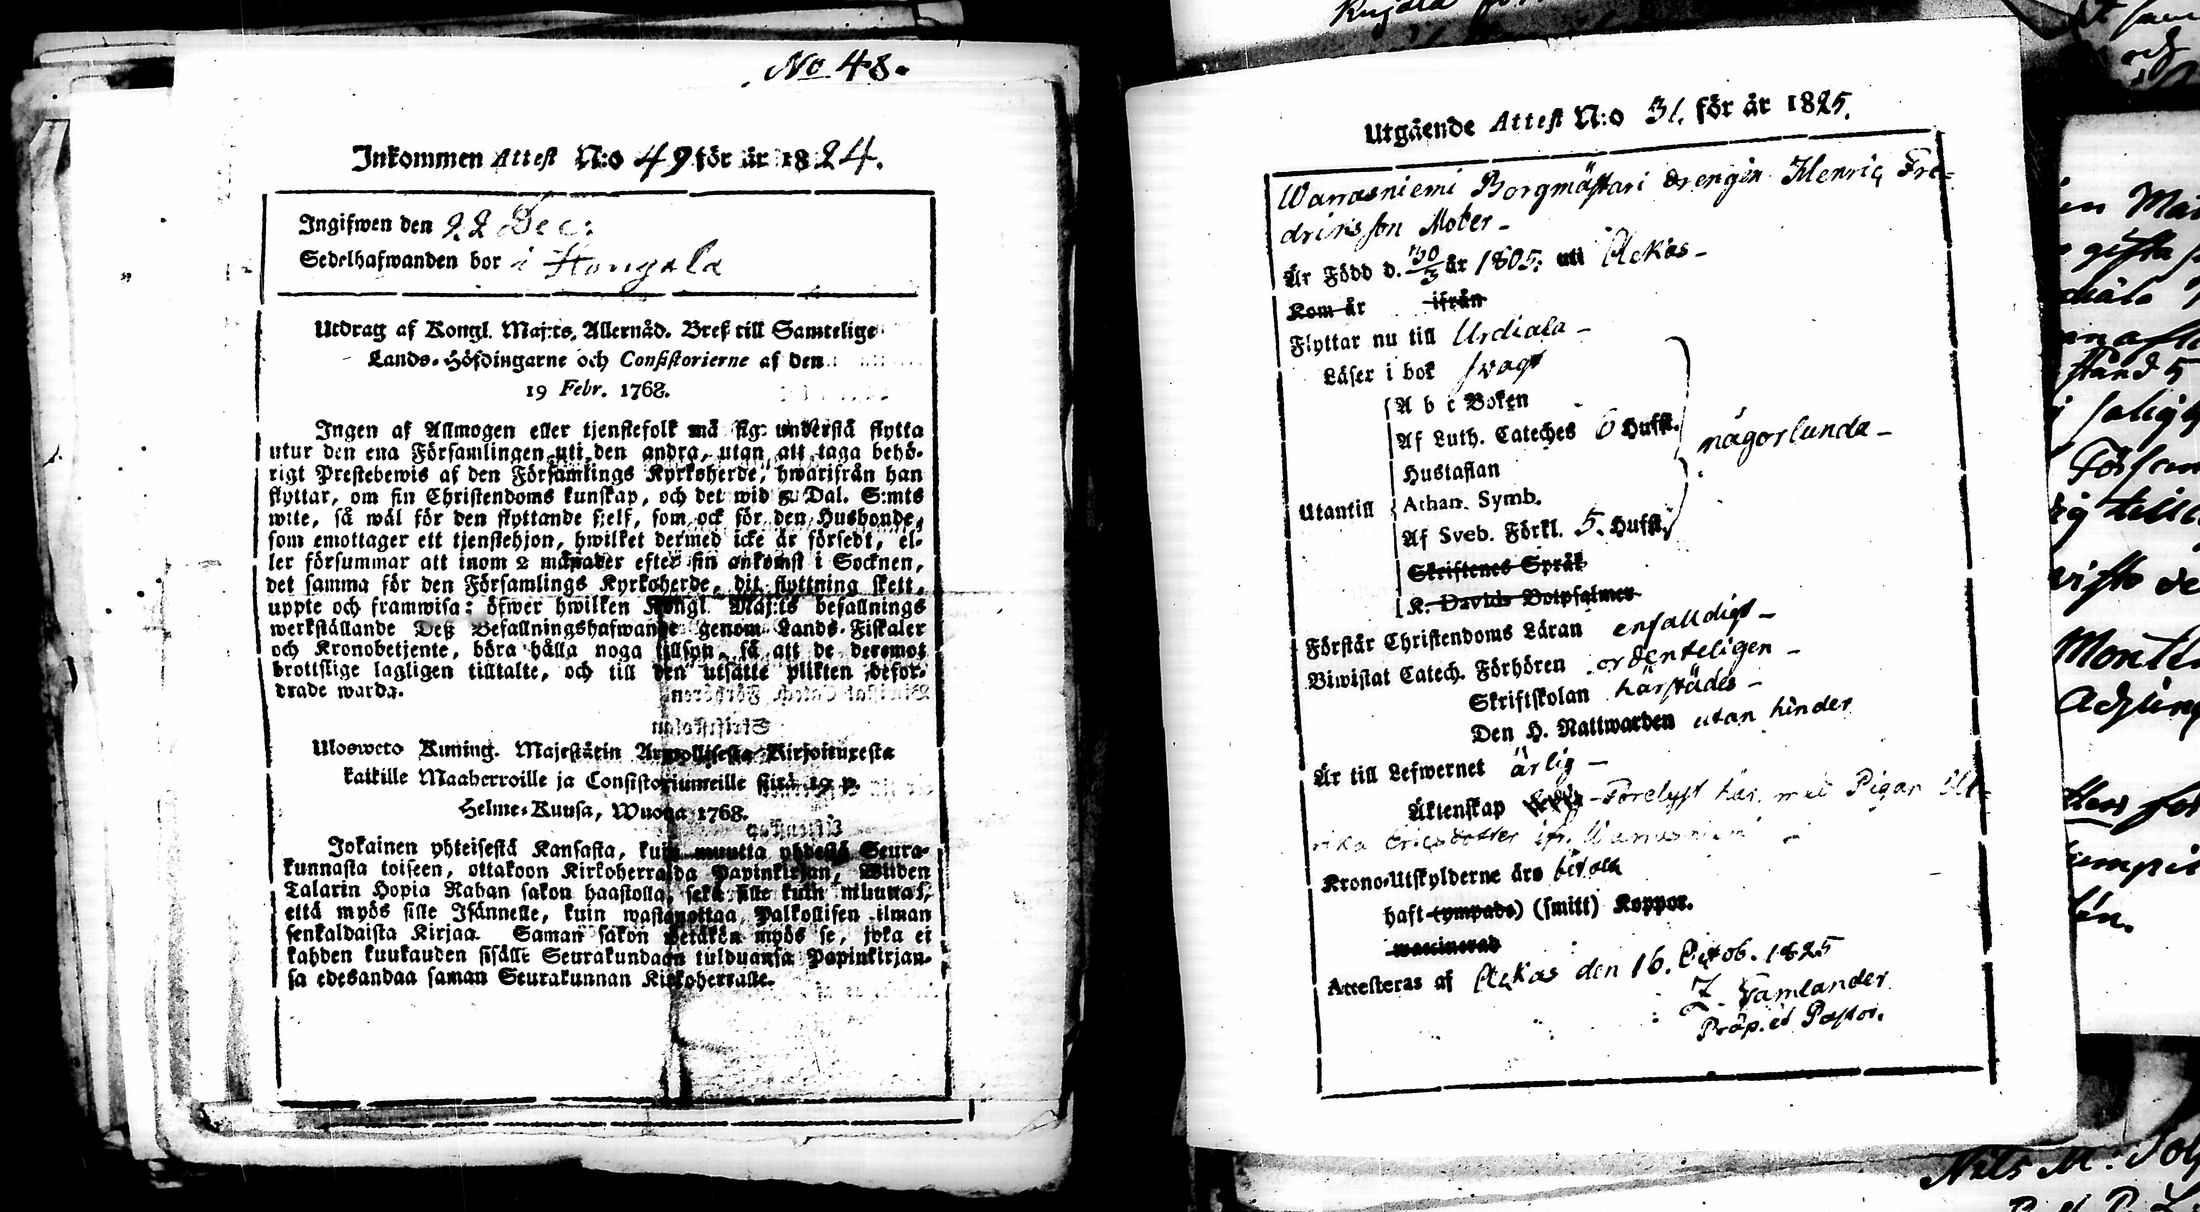 No 48.
Inkommen Attest N:o 49 för år 1824.
Ingifwen den 22 Dec:
Sedelhafwanden bor i Hongola
Utdrag af Kongl. Maj:ts. Allernåd. Bref till Samtelige
Lands-Höfdingarne och Consistorierne af den
19 Febr. 1768.
Ingen af Allmogen eller tjenstefolk må sig understå flytta
utur den ena Församlingen uti den andra, utan att taga behö-
rigt Prestebewis af den Församlings Kyrkoherde, hwarifrån han
flyttar, om sin Christendoms kunskap, och det wid 5 Dal. S:mts
wite, så wäl för den flyttande sjelf, som ock för den Husbonde,
som emottager ett tjenstehjon, hwilket dermed icke är försedt, el-
ler försummar att inom 2 månader efter sin ankomst i Socknen,
det samma för den Församlings Kyrkoherde, dit flyttning skett,
uppte och framwisa: öfwer hwilken Kongl. Maj:ts befallnings
werkställande Deß Befallningshafwande genom Lands-Fiskaler
och Kronobetjente, böra hålla noga tillsyn, så att de deremot
brottslige lagligen tilltalte, och till den utsatte plikten befor-
drade warda.
Ulosweto Kuning. Majestätin Armollisesta Kirjoituxesta
kaikille Maaherroille ja Consistoriumeille siitä 19 p.
Helme-Kuusa, Wuonna 1768.
Jokainen yhteisestä Kansasta, kuin muutta yhdestä Seura-
kunnasta toiseen, ottakoon Kirkoherralda Papinkirjan, Wiiden
Talarin Hopia Rahan sakon haastolla, sekä sille kuin muuttaa,
että myös sille Isännelle, kuin wastanottaa Palkollisen ilman
senkaldaista Kirjaa. Saman sakon wetäkön myös se, joka ei
kahden kuukauden sisälle Seurakundaan tulduansa Papinkirjan-
sa edesandaa saman Seurakunnan Kirkoherralle.
Utgående Attest N:o 31. för år 1825.
Warrasniemi Borgmästari drengen Henric Fre-
dricsson Mober -
Är Född d. 30/3 år 1805: uti Ackas -
Kom år ifrån
Flyttar nu till Urdiala -
Läser i bok svagt
A b c Boken
Af Luth. Cateches 6 Hufst.
någorlunda -
Hustaflan
Utantill
Athan. Symb.
Af Sveb. Förkl. 5. Hufst.
Skriftenes Språk
K. Davids Botpsalmer
Förstår Christendoms Läran enfalldigt -
Biwistat Catech. Förhören ordenteligen -
Skriftskolan härstädes -
Den H. Nattwarden utan hinder
Är till Lefwernet ärlig -
Äktenskap - Förelyst här med Pigan Ul-
rika Ericsdotter ifr. Warrasniemi -
Krono-Utskylderne äro betalta
haft (ympade) (smitt) Koppor.
waccinerad
Attesteras af Ackas den 16. Octob. 1825
Z. Famlander
Präp. et Pastor.